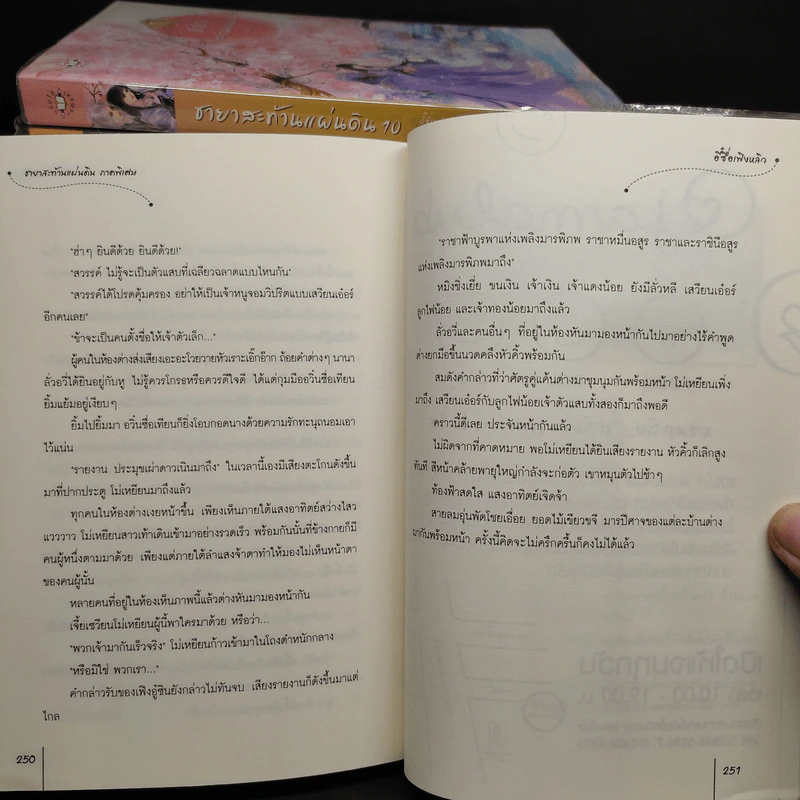 ชายาสะท้านแผ่นดิน 10
ชายาสะท้านแผ่นดิน ภาคพิเศษ
"ฮ่าๆ ยินดีด้วย ยินดีด้วย!"
"สวรรค์ ไม่รู้จะเป็นตัวแสบที่เฉลียวฉลาดแบบไหนกัน"
"สวรรค์ได้โปรดคุ้มครอง อย่าให้เป็นเจ้าหนูจอมวิปริตแบบเสวียนเอ๋อร์
อีกคนเลย"
"ข้าจะเป็นคนตั้งชื่อให้เจ้าตัวเล็ก..."
ผู้คนในห้องต่างส่งเสียงเอะอะโวยวายหัวเราะเอิ๊กอ๊าก ถ้อยคำต่างๆ นานา
ลั่วอวี่ได้ยินอยู่กับหู ไม่รู้ควรโกรธหรือควรดีใจดี ได้แต่กุมมืออวิ๋นซื่อเทียน
ยิ้มแย้มอยู่เงียบๆ
ยิ้มไปยิ้มมา อวิ๋นซื่อเทียนก็ยิ่งโอบกอดนางด้วยความรักทะนุถนอมเอา
ไว้แน่น
"รายงาน ประมุขเผ่าดาวเนินมาถึง" ในเวลานี้เองมีเสียงตะโกนดังขึ้น
มาที่ปากประตู โม่เหยียนมาถึงแล้ว
ทุกคนในห้องต่างเงยหน้าขึ้น เพียงเห็นภายใต้แสงอาทิตย์สว่างไสว
แวววาว โม่เหยียนสาวเท้าเดินเข้ามาอย่างรวดเร็ว พร้อมกันนั้นที่ข้างกายก็มี
คนผู้หนึ่งตามมาด้วย เพียงแต่ภายใต้ลำแสงจ้าตาทำให้มองไม่เห็นหน้าตา
ของคนผู้นั้น
หลายคนที่อยู่ในห้องเห็นภาพนี้แล้วต่างหันมามองหน้ากัน
เจี้ยเซวียนโม่เหยียนผู้นี้พาใครมาด้วย หรือว่า...
"พวกเจ้ามากันเร็วจริง" โม่เหยียนก้าวเข้ามาในโถงตำหนักกลาง
"หรือมิใช่ พวกเรา..."
คำกล่าวรับของเฟิงอู๋ซินยังกล่าวไม่ทันจบ เสียงรายงานก็ดังขึ้นมาแต่
ไกล
250
อี๋ซื่อเฟิงหลิว
"ราชาฟ้าบูรพาแห่งเพลิงมารพิภพ ราชาหมื่นอสูร ราชาและราชินีอสูร
แห่งเพลิงมารพิภพมาถึง"
หมิงชิ่งเยี่ย ขนเงิน เจ้าเงิน เจ้าแดงน้อย ยังมีลั่วหลี เสวียนเอ๋อร์
ลูกไฟน้อย และเจ้าทองน้อยมาถึงแล้ว
ลั่วอวี่และคนอื่นๆ ที่อยู่ในห้องหันมามองหน้ากันไปมาอย่างไร้คำพูด
ต่างยกมือขึ้นนวดคลึงหัวคิ้วพร้อมกัน
สมดังคำกล่าวที่ว่าศัตรูคู่แค้นต่างมาชุมนุมกันพร้อมหน้า โม่เหยียนเพิ่ง
มาถึง เสวียนเอ๋อร์กับลูกไฟน้อยเจ้าตัวแสบทั้งสองก็มาถึงพอดี
คราวนี้ดีเลย ประจันหน้ากันแล้ว
ไม่ผิดจากที่คาดหมาย พอโม่เหยียนได้ยินเสียงรายงาน หัวคิ้วก็เลิกสูง
ทันที สีหน้าคล้ายพายุใหญ่กำลังจะก่อตัว เขาหมุนตัวไปช้าๆ
ท้องฟ้าสดใส แสงอาทิตย์เจิดจ้า
สายลมอุ่นพัดโชยเอื่อย ยอดไม้เขียวขจี มารปีศาจของแต่ละบ้านต่าง
มากันพร้อมหน้า ครั้งนี้คิดจะไม่ครึกครื้นก็คงไม่ได้แล้ว
251